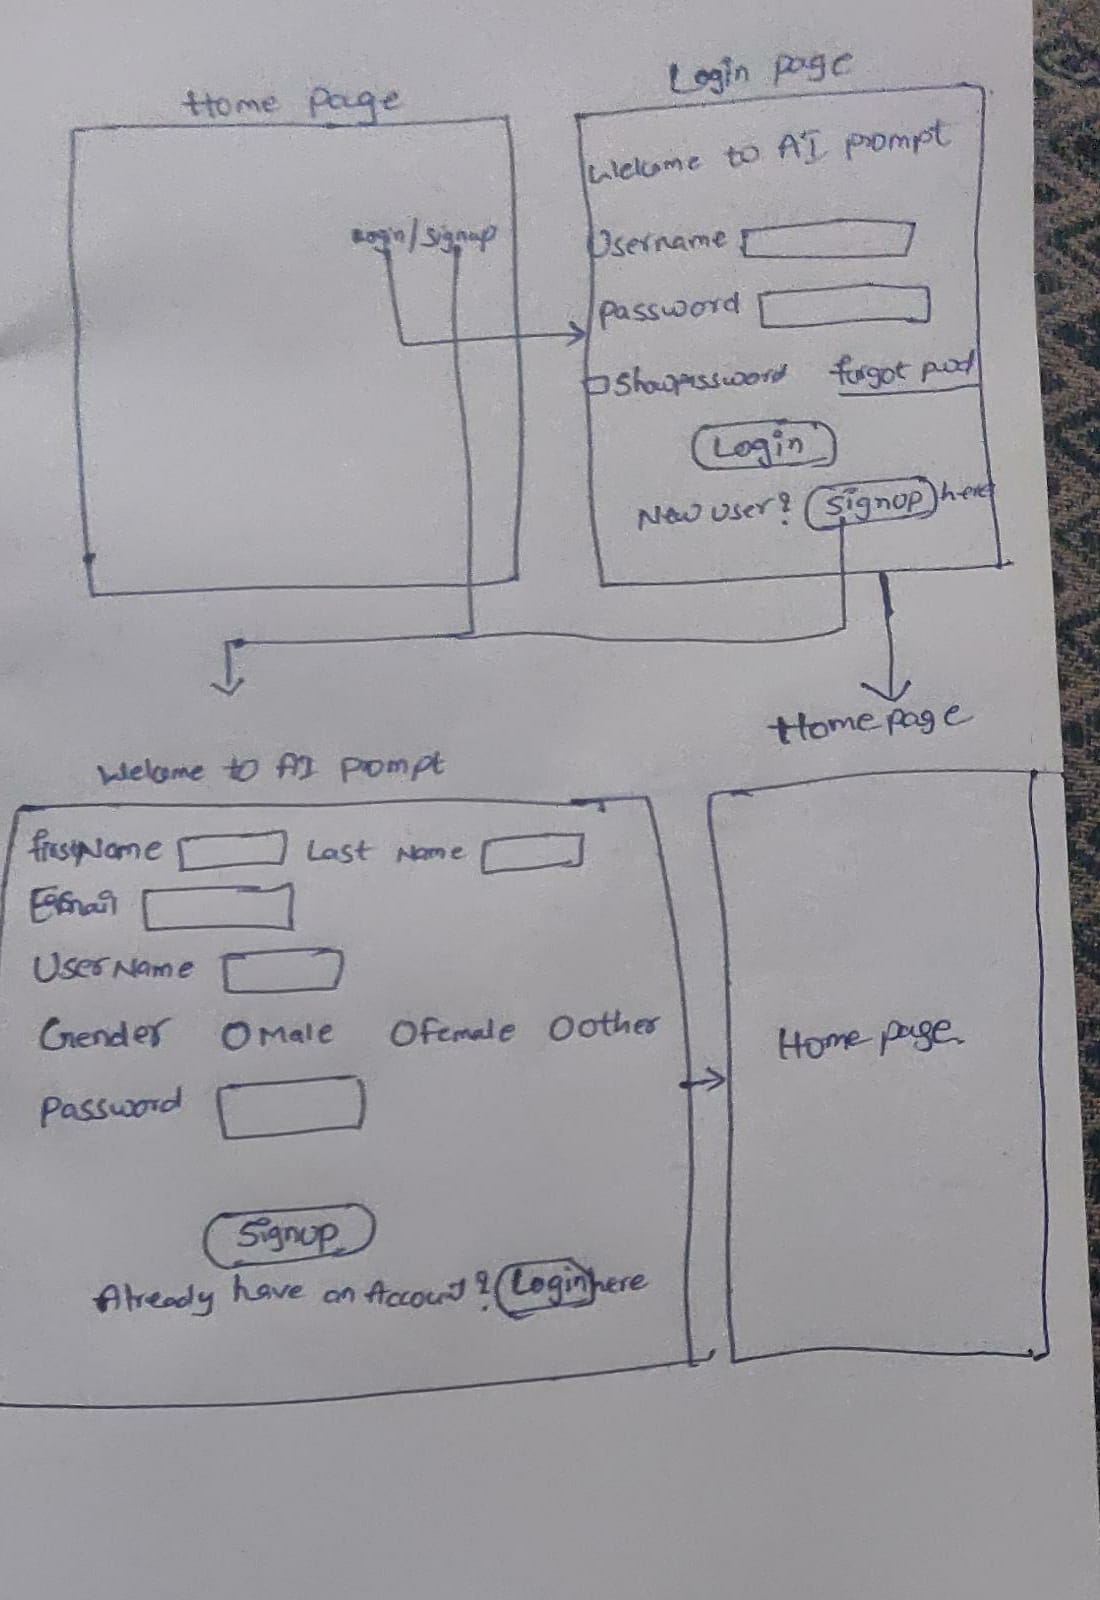 Home Page
Login/Signup
Login page
Welcome to AI prompt
Username
Password
Showpassword forgot pwd
Login
New user? Signup here
Home page
Welcome to AI prompt
firstName Last Name
Email
UserName
Gender Male Female Other
Password
Signup
Already have an Account? Login here
Home page